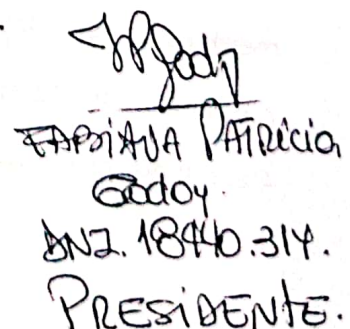 FABIANA PATRICIA
Godoy.
DNI. 18440.314.
PRESIDENTE.